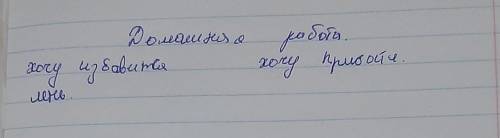 Домашняя работа.
хочу избавится хочу привойти.
лень.